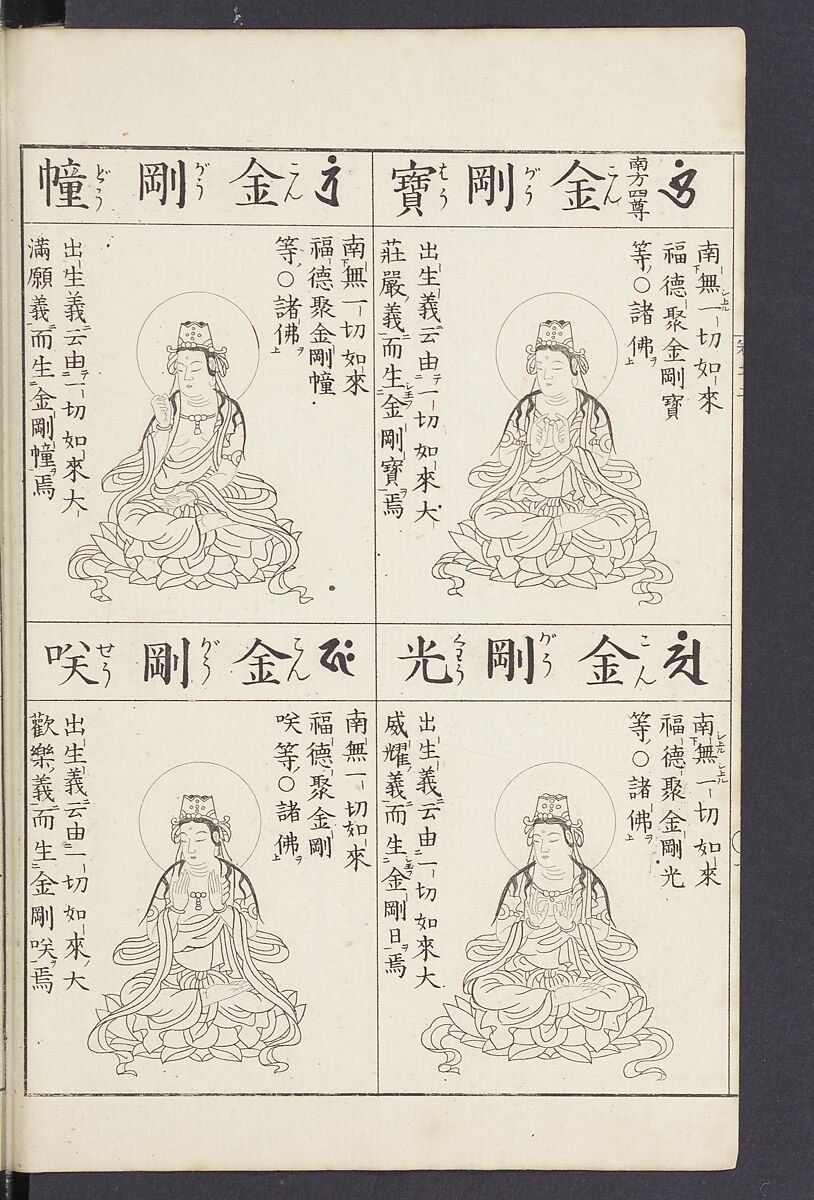 南方四尊
金剛寶
こんがうはう
南無一切如來
福德聚金剛寶
等〇諸佛
出生義云由一切如來大
莊嚴義而生金剛寶焉
金剛光
こんがうくわう
南無一切如來
福德聚金剛光
等〇諸佛
出生義云由一切如來大
威耀義而生金剛日焉
金剛幢
こんがうどう
南無一切如來
福德聚金剛幢
等〇諸佛
出生義云由一切如來大
滿願義而生金剛幢焉
金剛咲
こんがうせう
南無一切如來
福德聚金剛
咲等〇諸佛
出生義云由一切如來大
歡樂義而生金剛咲焉